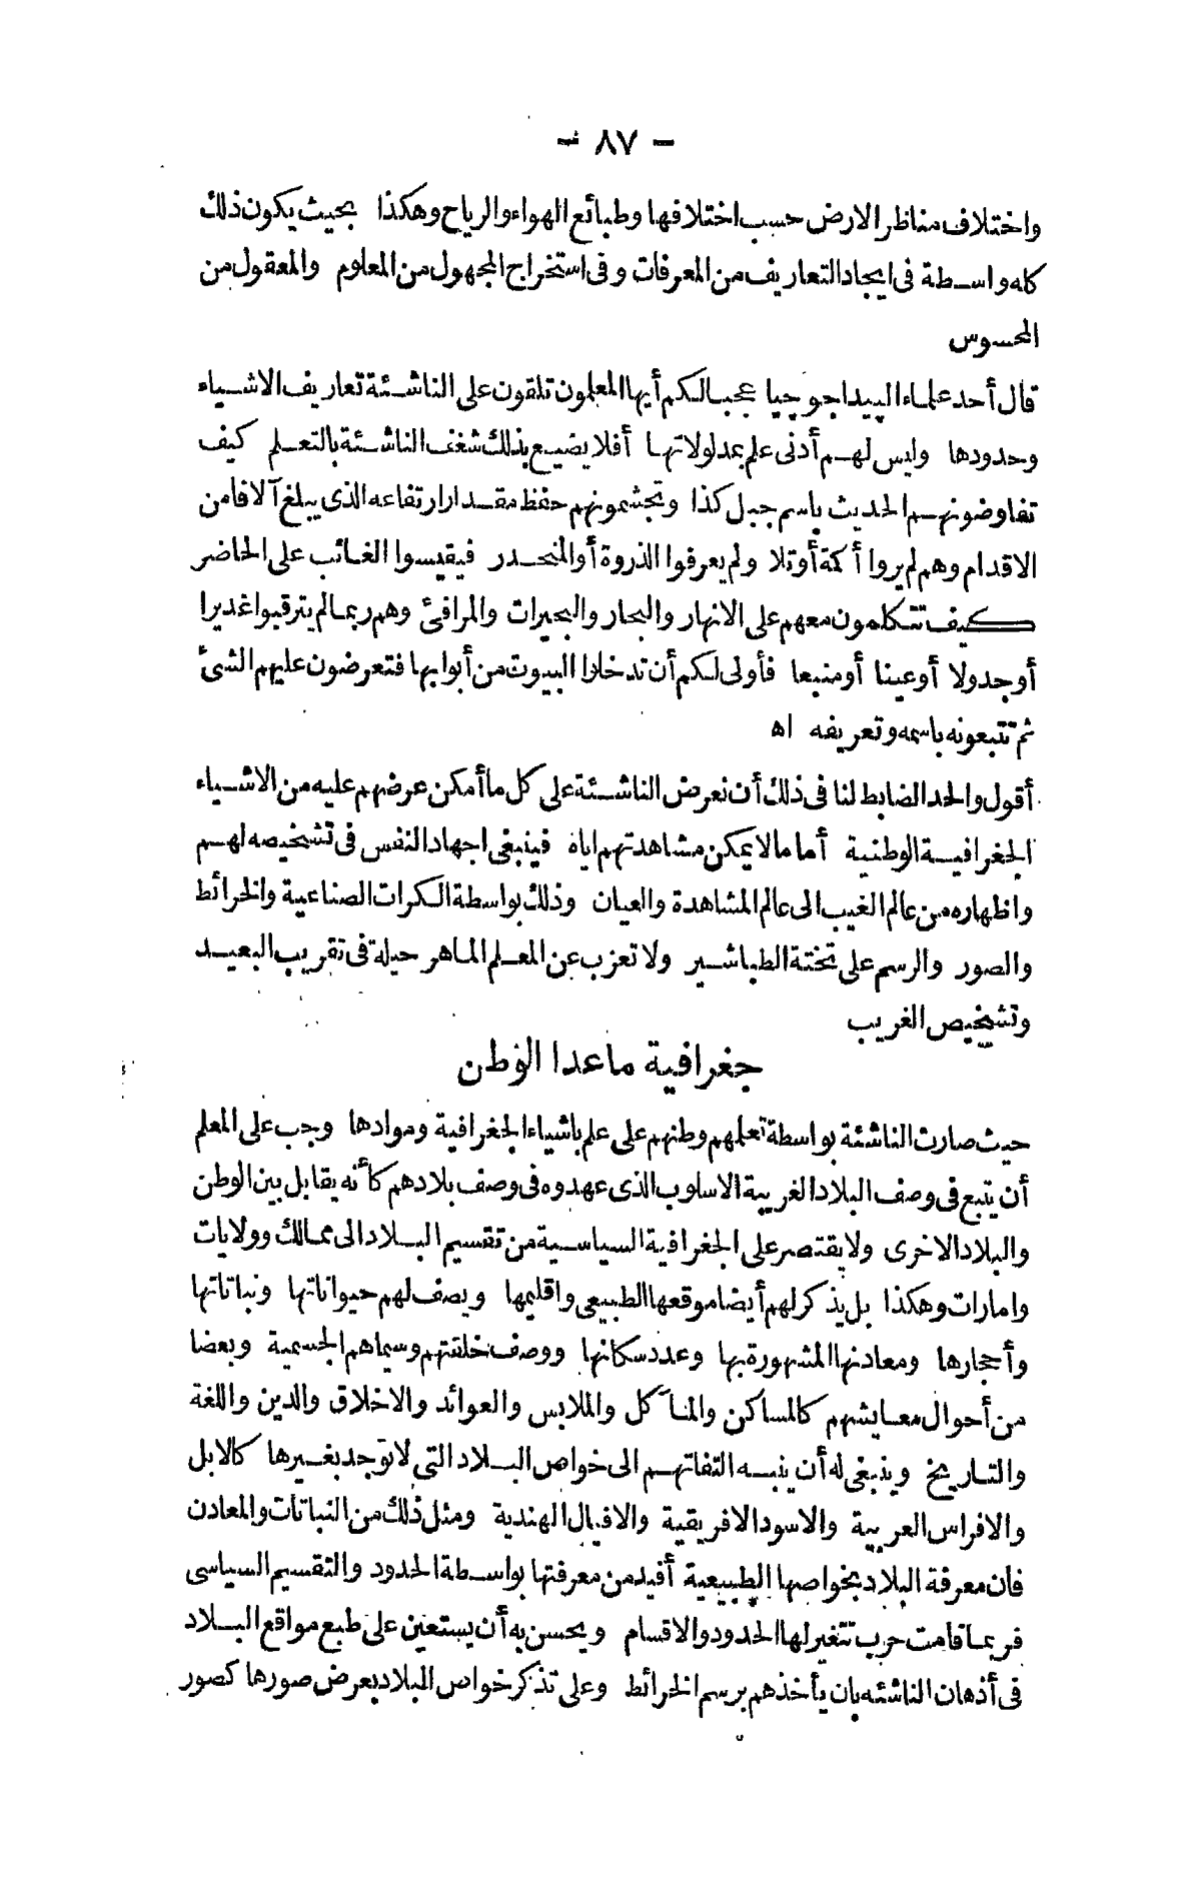 - ٨٧ -
واختلاف مناظر الارض حسب اختلافها وطبائع الهواء والرياح وهكذا بحيث يكون ذلك
كله واسطة فى ايجاد التعاريف من المعرفات وفى استخراج المجهول من المعلوم والمعقول من
المحسوس
قال أحد علماء البيداجوجيا عجبا لكم أيها المعلمون تلقون على الناشئة تعاريف الاشياء
وحدودها وليس لهم أدنى علم بمدلولاتها أفلا يضيع بذلك شغف الناشئة بالتعلم كيف
تفاوضونهم الحديث باسم جبل كذا وتجشمونهم حفظ مقدار ارتفاعه الذى يبلغ آلافا من
الاقدام وهم لم يروا أكمة أو تلا ولم يعرفوا الذروة أو المنحدر فيقيسوا الغائب على الحاضر
كيف تتكلمون معهم على الانهار والبحار والبحيرات والمرافئ وهم ربما لم يترقبوا غديرا
أو جدولا أو عينا أو منبعا فأولى لكم أن تدخلوا البيوت من أبوابها فتعرضون عليهم الشئ
ثم تتبعونه باسمه وتعريفه اه
أقول والحد الضابط لنا فى ذلك أن نعرض الناشئة على كل ما أمكن عرضهم عليه من الاشياء
الجغرافية الوطنية أما ما لا يمكن مشاهدتهم اياه فينبغى اجهاد النفس فى تشخيصه لهم
واظهاره من عالم الغيب الى عالم المشاهدة والعيان وذلك بواسطة الكرات الصناعية والخرائط
والصور والرسم على تختة الطباشير ولا تعزب عن المعلم الماهر حيلة فى تقريب البعيد
وتشخيص الغريب
جغرافية ماعدا الوطن
حيث صارت الناشئة بواسطة تعلمهم وطنهم على علم باشياء الجغرافية وموادها وجب على المعلم
أن يتبع فى وصف البلاد الغريبة الاسلوب الذى عهدوه فى وصف بلادهم كأنه يقابل بين الوطن
والبلاد الاخرى ولا يقتصر على الجغرافية السياسية من تقسيم البلاد الى ممالك وولايات
وامارات وهكذا بل يذكر لهم أيضا موقعها الطبيعى واقليمها ويصف لهم حيواناتها ونباتاتها
وأحجارها ومعادنها المشهورة بها وعدد سكانها ووصف خلقتهم وسيماهم الجسمية وبعضا
من أحوال معايشهم كالمساكن والمآكل والملابس والعوائد والاخلاق والدين واللغة
والتاريخ وينبغى له أن ينبه التفاتهم الى خواص البلاد التى لا توجد بغيرها كالابل
والافراس العربية والاسود الافريقية والافيال الهندية ومثل ذلك من النباتات والمعادن
فان معرفة البلاد بخواصها الطبيعية أفيد من معرفتها بواسطة الحدود والتقسيم السياسى
فربما قامت حرب تتغير لها الحدود والاقسام ويحسن به أن يستعين على طبع مواقع البلاد
فى أذهان الناشئه بان يأخذهم برسم الخرائط وعلى تذكر خواص البلاد بعرض صورها كصور